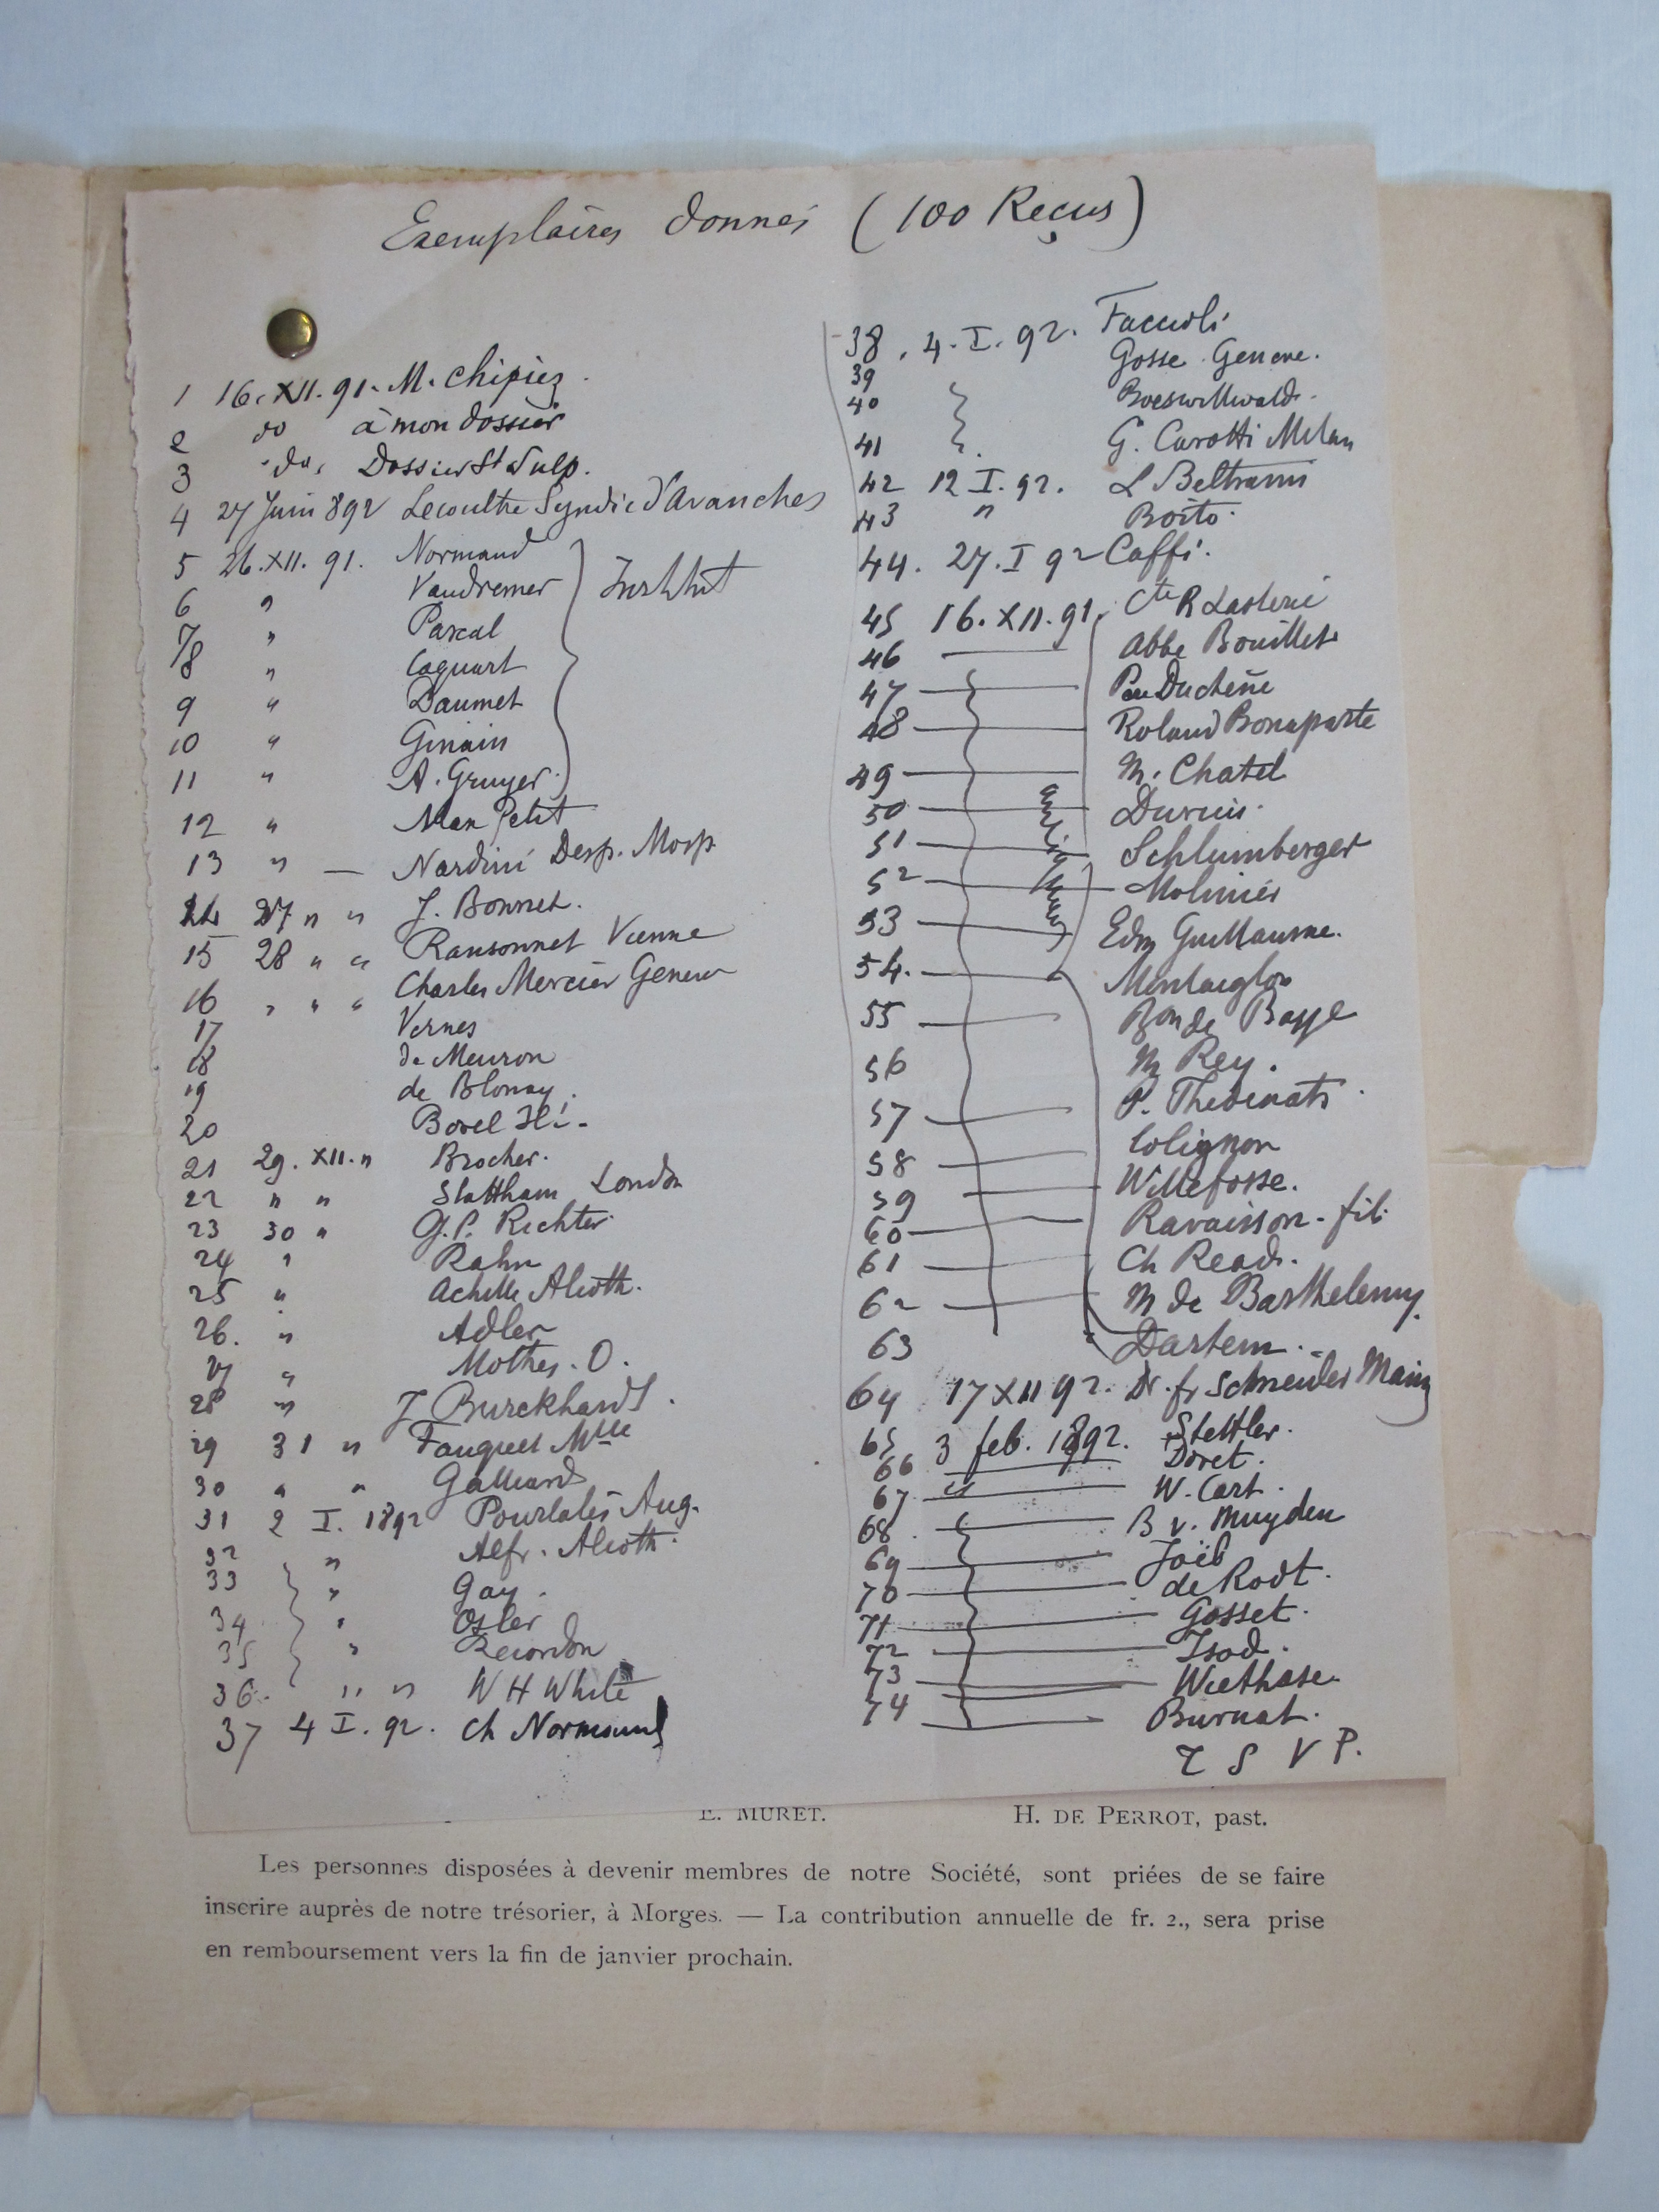 Exemplaires donnés (100 Reçus)
1 16. XII. 91. M. Chipiez.
2 do à mon dossier
3 do, Dossier St Sulp.
4 27 Juin 892 Lecoultre Syndic d'Avanches
5 26. XII. 91. Normand
6 " Vaudremer Institut
7 " Pascal
8 " Coquart
9 " Daumet
10 " Ginain
11 " A. Gruyer
12 " Max Petit
13 " — Nardini Desp. Morp
14 27 " " J. Bonnet.
15 28 " " Ransonnet Vienne
16 " " " Charles Mercier Geneve
17 Vernes
18 de Meuron
19 de Blonay.
20 Borel
21 29. XII. " Brocher.
22 " " Stattham London
23 30 " G.P. Richter
24 " Rahn
25 " Achille Alioth.
26. " Adler
27 " Mothes. O.
28 " J Burckhardt.
29 31 " Fauquez Mlle
30 " " Galliard
31 2 I. 1892 Pourtales Aug.
32 " Alfr. Alioth.
33 " Gay.
34 " Osler
35 " Recordon
36. " " W H White
37 4 I. 92. Ch Normand
38. 4. I. 92. Faccioli
39 Gosse. Geneve.
40 Boeswillwald.
41 G. Carotti Milan
42 12 I. 92. L Beltrami
43 " Boito.
44. 27. I 92 Caffi.
45 16. XII. 91. Cte R Lasterie
46 — Abbe Bouillet
47 — Pere Duchêne
48 — Roland Bonaparte
49 — M. Chatel
50 — Duruis.
51 — Schlumberger
52 — Molinier
53 — Edm Guillaume.
54. — Montaiglon
55 — Bon de Baye
56 M Rey.
57 — P. Thedenat
58 — Colignon
59 — Willefosse.
60 — Ravaisson - fils
61 — Ch Read.
62 — M de Barthelemy.
63 Dartein.
64 17 XII 92. Dr. fr Schneider Mainz
65 3 feb. 1892. Stettler.
66 — Doret.
67 — W. Cart.
68. — B v. Muyden
69 — Joël
70 — de Rodt.
71 — Gosset.
72 — Isod.
73 — Wiethase
74 — Burnat.
T S V P.
E. MURET. H. DE PERROT, past.
Les personnes disposées à devenir membres de notre Société, sont priées de se faire
inscrire auprès de notre trésorier, à Morges. — La contribution annuelle de fr. 2., sera prise
en remboursement vers la fin de janvier prochain.